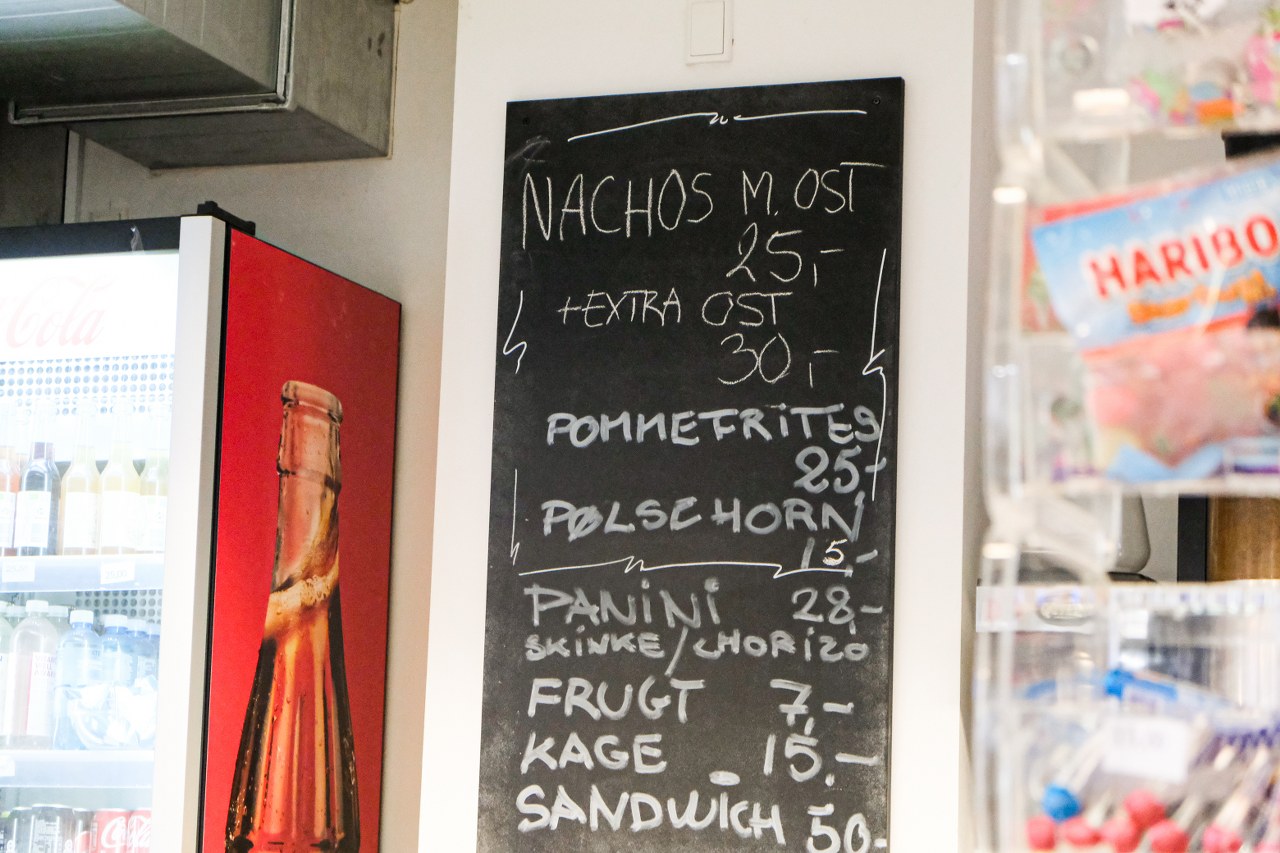 NACHOS M. OST
25,-
+EXTRA OST
30,-
POMMEFRITES
25-
PØLSEHORN
15,-
PANINI 28,-
SKINKE/CHORIZO
FRUGT 7,-
KAGE 15,-
SANDWICH 50,-
Cola
Coca-Cola
HARIBO